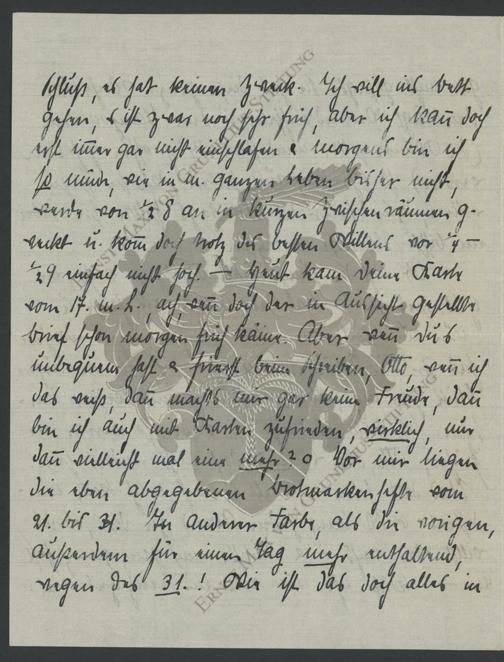 Schluß, es hat keinen Zweck. Ich will ins Bett
gehen, es ist zwar noch sehr früh, aber ich kan̄ doch
erst im̄er gar nicht einschlafen & morgens bin ich
so müde, wie in m. ganzen Leben bisher nicht,
werde von ½ 8 an in kurzen Zwischenräumen ge-
weckt u. kom̄ doch trotz des besten Willens vor ¼ –
½ 9 einfach nicht hoch. — Heut kam Deine Karte
vom 17. m. L., ach, wen̄ doch der in Aussicht gestellte
Brief schon morgen früh käme. Aber wen̄ Du's
unbequem hast & frierst beim Schreiben, Otto, wen̄ ich
das weiß, dan̄ macht's mir gar keine Freude, dan̄
bin ich auch mit Karten zufrieden, wirklich, nur
dan̄ vielleicht mal eine mehr? Vor mir liegen
die eben abgegebenen Brotmarkenhefte vom
21. bis 31. In anderer Farbe, als die vorigen,
außerdem für einen Tag mehr enthaltend,
wegen des 31.! Wie ist das doch alles in